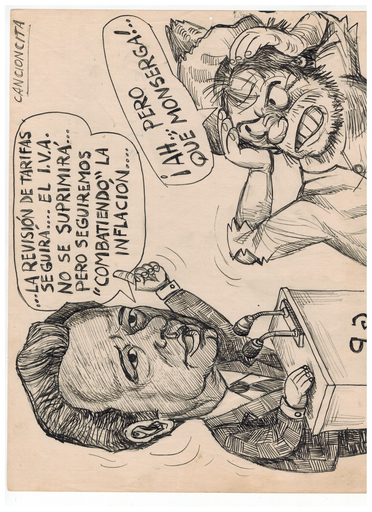 CANCIONCITA
...LA REVISIÓN DE TARIFAS
SEGUIRÁ.... EL I.V.A.
NO SE SUPRIMIRA...
PERO SEGUIREMOS
"COMBATIENDO" LA
INFLACIÓN....
¡AH,, PERO
QUÉ MONSERGA!...